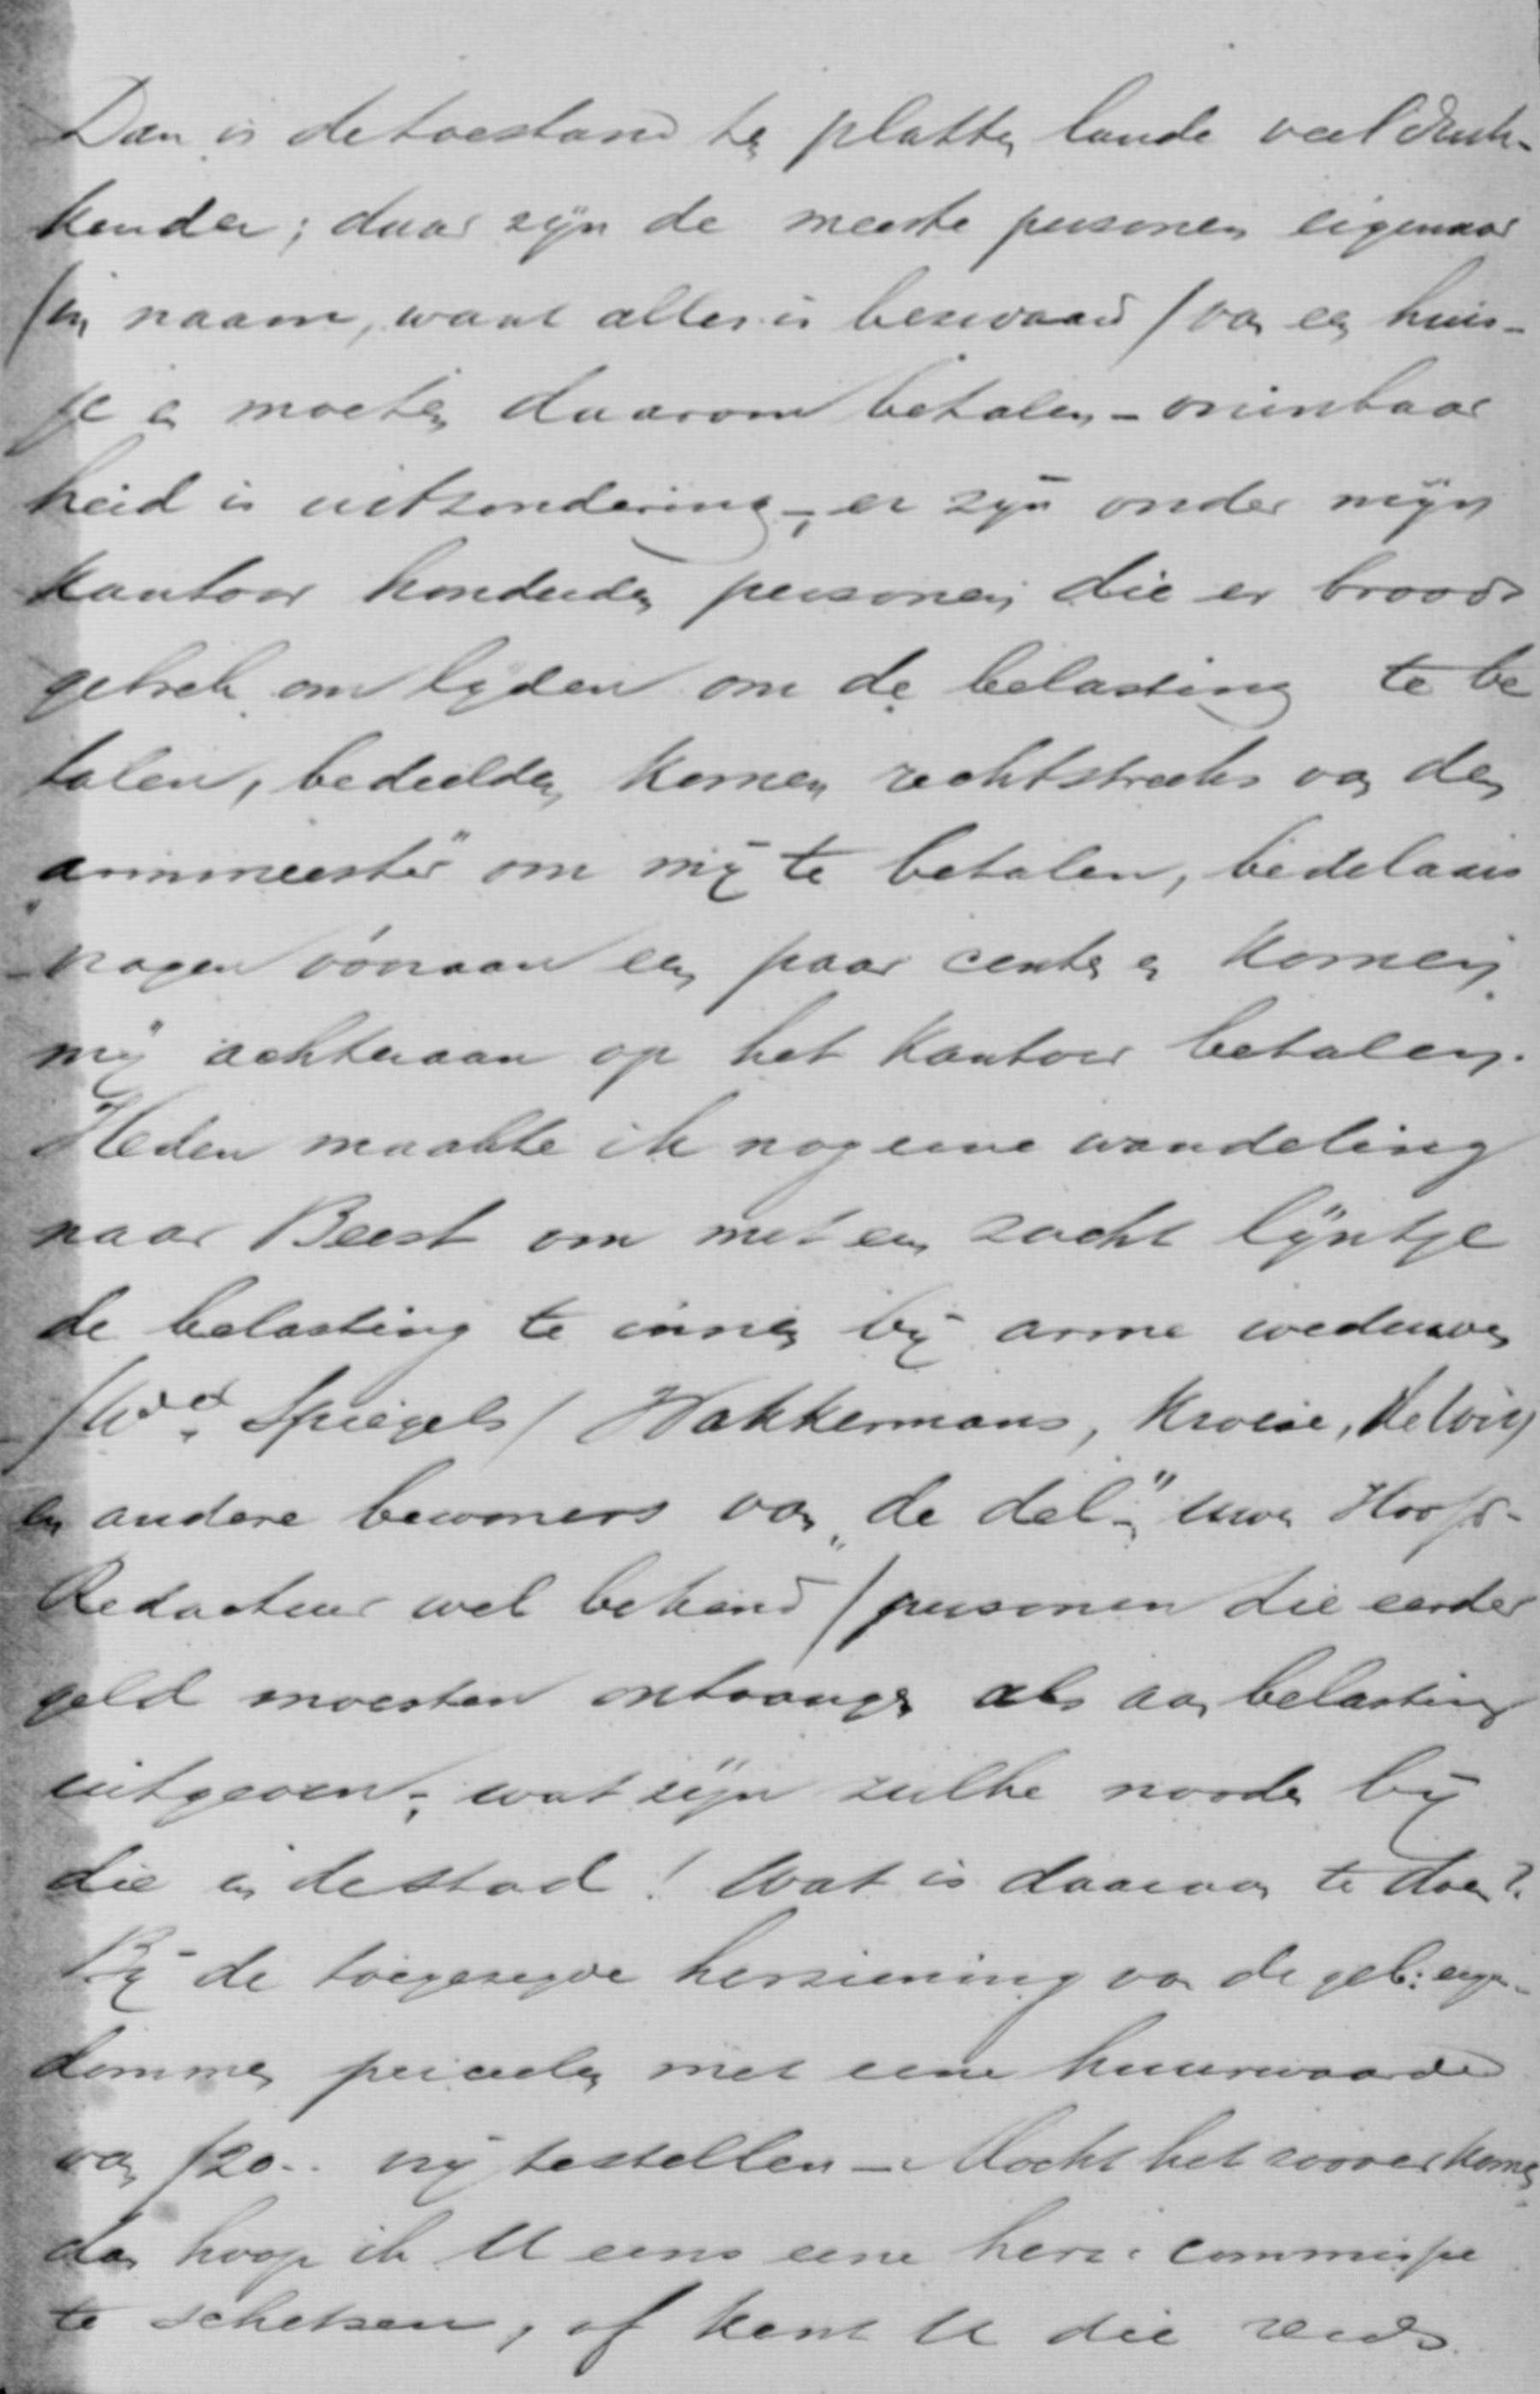 Dan is de toestand ten platten lande veel druk-
kender; daar zijn de meeste personen eigenaar
/in naam, want alles is bezwaard / van een huis-
je en moeten daarom betalen - oninbaar
heid is uitzondering -; er zijn onder mijn
kantoor honderden personen die er broods
gebrek om lijden om de belasting te be
talen, bedeelden komen rechtstreeks van den
"armmeester" om mij te betalen, bedelaars
vragen vóóraan een paar centen en komen
mij achteraan op het kantoor betalen.
Heden maakte ik nog eene wandeling
naar Beest om met een zacht lijntje
de belasting te innen bij arme weduwen
/Wed. Spiegels/ Wakkermans, Kroese,
en andere bewoners van "de del"-, uwen Hoofd-
Redacteur wel bekend / personen die eerder
geld moesten ontvangen als aan belasting
uitgeven -; wat zijn zulke nooden bij
die in de stad! Wat is daaraan te doen?
Bij de toegezegde herziening van de geb: eigen-
dommen perceelen met eene huurwaarde
van ƒ20.. vrij te stellen - Mocht het zoover komen
dan hoop ik U eens eene herz: commissie
te schetsen, of kent U die reeds